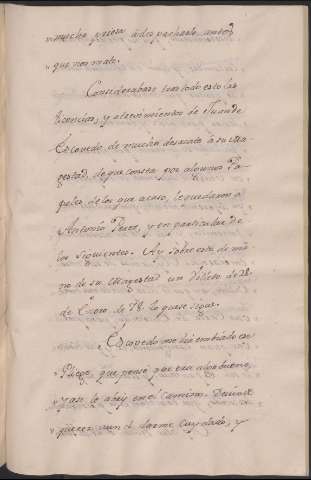 "mucha priesa à despacharle, antes q̃
"que nos mate.
Considerabase tras todo esto las
licencias, y atrevimientos de Juan de
Escovedo, de mucho desacato à su Ma
gestad, de que consta por algunos Pa
peles de los que acaso, le quedaron à
Antonio Perez, y en particular de
los siguientes. Ay sobre esto de ma
no de su Magestad un villete de 18
de Enero de 78. lo que se sigue.
Escovedo me hà embiado ese
"Pliego, que pensè que era algo bueno,
"y assi lo abrì en el camino.
"querer aun el darme cuydado, y